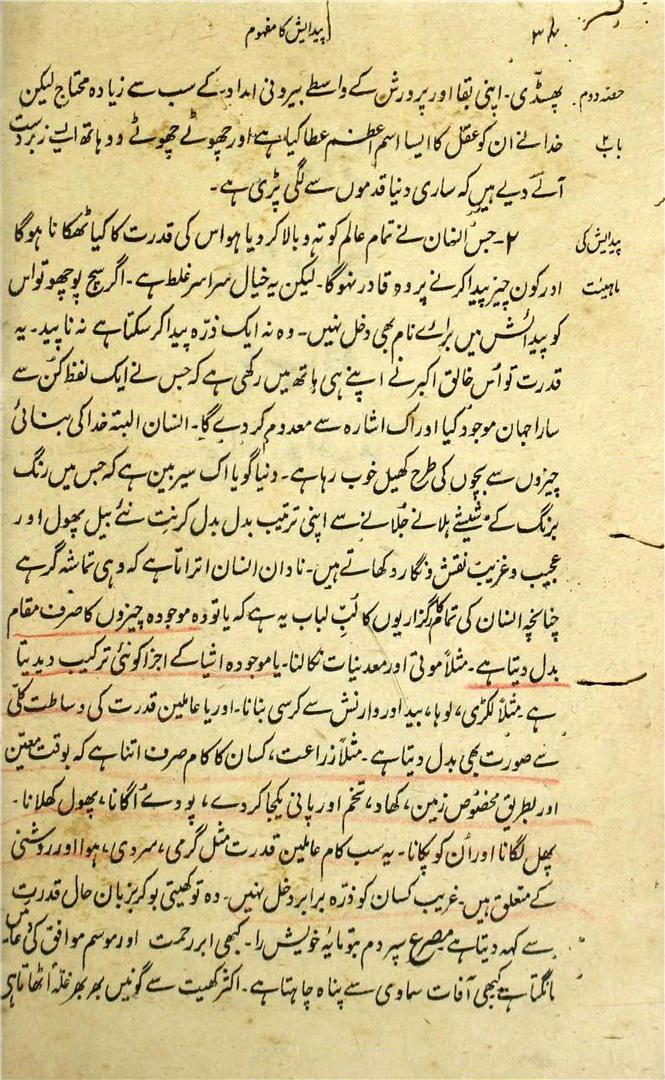 ۳۸
پیدایش کا مفہوم
حصّہ دوم
پھسڈّی۔ اپنی بقا اور پرورش کے واسطے بیرونی امداد کے سب سے زیادہ محتاج لیکن
باب ۲
خدا نے ان کو عقل کا ایسا اسم اعظم عطا کیا ہے اور چھوٹے چھوٹے دو ہاتھ ایسے زبردست
آلے دیے ہیں کہ ساری دنیا قدموں سے لگی پڑی ہے۔
پیدایش کی
۲۔ جس انسان نے تمام عالم کو تہ و بالا کر دیا ہو اس کی قدرت کا کیا ٹھکانا ہوگا
ماہیئت
اور کون چیز پیدا کرنے پر وہ قادر نہوگا۔ لیکن یہ خیال سراسر غلط ہے۔ اگر سچ پوچھو تو اس
کو پیدائش میں برائے نام بھی دخل نہیں۔ وہ نہ ایک ذرّہ پیدا کرسکتا ہے نہ ناپید۔ یہ
قدرت تو اُس خالق اکبر نے اپنے ہی ہاتھ میں رکھی ہے کہ جس نے ایک لفظ کُن سے
سارا جہان موجود کیا اور اک اشارہ سے معدوم کر دے گا۔ انسان البتہ خدا کی بنائی
چیزوں سے بچوں کی طرح کھیل خوب رہا ہے۔ دنیا گویا اک سیربین ہے کہ جس میں رنگ
برنگ کے شیشے ہلانے جلانے سے اپنی ترتیب بدل بدل کر نت نئے بیل پھول اور
عجیب و غریب نقش و نگار دکھاتے ہیں۔ نادان انسان اتراتا ہے کہ وہی تماشہ گر ہے
چنانچہ انسان کی تمام کارگزاریوں کا لُبّ لباب یہ ہے کہ یا تو وہ موجودہ چیزوں کا صرف مقام
بدل دیتا ہے۔ مثلاً موتی اور معدنیات نکالنا۔ یا موجودہ اشیا کے اجزا کو نئی ترکیب دیدیتا
ہے مثلاً لکڑی، لوہا، بید اور وارنش سے کرسی بنانا۔ اور یا عاملین قدرت کی وساطت کلّی
سے صورت بھی بدل دیتا ہے۔ مثلاً زراعت، کسان کا کام صرف اتنا ہے کہ بوقت معیّن
اور بطریق مخصوص زمین، کھاد، تخم اور پانی یکجا کر دے، پودے اُگانا، پھول کھلانا۔
پھل لگانا اور اُن کو پکانا۔ یہ سب کام عاملین قدرت مثل گرمی، سردی، ہوا اور روشنی
کے متعلق ہیں۔ غریب کسان کو ذرّہ برابر دخل نہیں۔ وہ تو کھیتی بو کر بزبان حال قدرت
سے کہہ دیتا ہے مصرع سپردم بتو مایۂ خویش را۔ کبھی ابر رحمت اور موسم موافق کی دُعائیں
مانگتا ہے کبھی آفات سماوی سے پناہ چاہتا ہے۔ اکثر کھیت سے گونیں بھر بھر غلّہ اُٹھاتا ہی